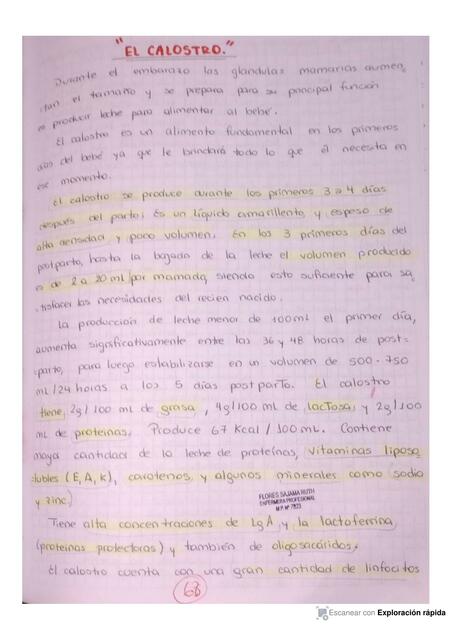 "EL CALOSTRO."
Durante el embarazo las glandulas mamarias aumen
tan el tamaño y se prepara para su principal función
es producir leche para alimentar al bebé.
El calostro es un alimento fundamental en los primeros
días del bebé ya que le brindará todo lo que él necesita en
ese momento.
El calostro se produce durante los primeros 3 a 4 días
después del parto; Es un líquido amarillento, y espeso de
alta densidad y poco volumen. En los 3 primeros días del
postparto, hasta la bajada de la leche el volumen producido
es de 2 a 20 ml por mamada, siendo esto suficiente para sa
tisfacer las necesidades del recien nacido.
La producción de leche menor de 100 ml el primer día,
aumenta significativamente entre las 36 y 48 horas de post-
parto, para luego estabilizarse en un volumen de 500-750
mL/24 horas a los 5 días postparto. El calostro
tiene, 2g/100 mL de grasa, 4g/100 mL de lactosa, y 2g/100
mL de proteínas. Produce 67 Kcal/100 mL. Contiene
mayo cantidad de la leche de proteínas, vitaminas liposo
lubles (E, A, K), carotenos, y algunos minerales como sodio
y zinc.
FLORES SAJAMA RUTH
ENFERMERA PROFESIONAL
M.P. Nº 7823
Tiene alta concentraciones de IgA y la lactoferrina
(proteínas protectoras) y también de oligosacáridos.
El calostro cuenta con una gran cantidad de linfocitos
68
Escanear con Exploración rápida